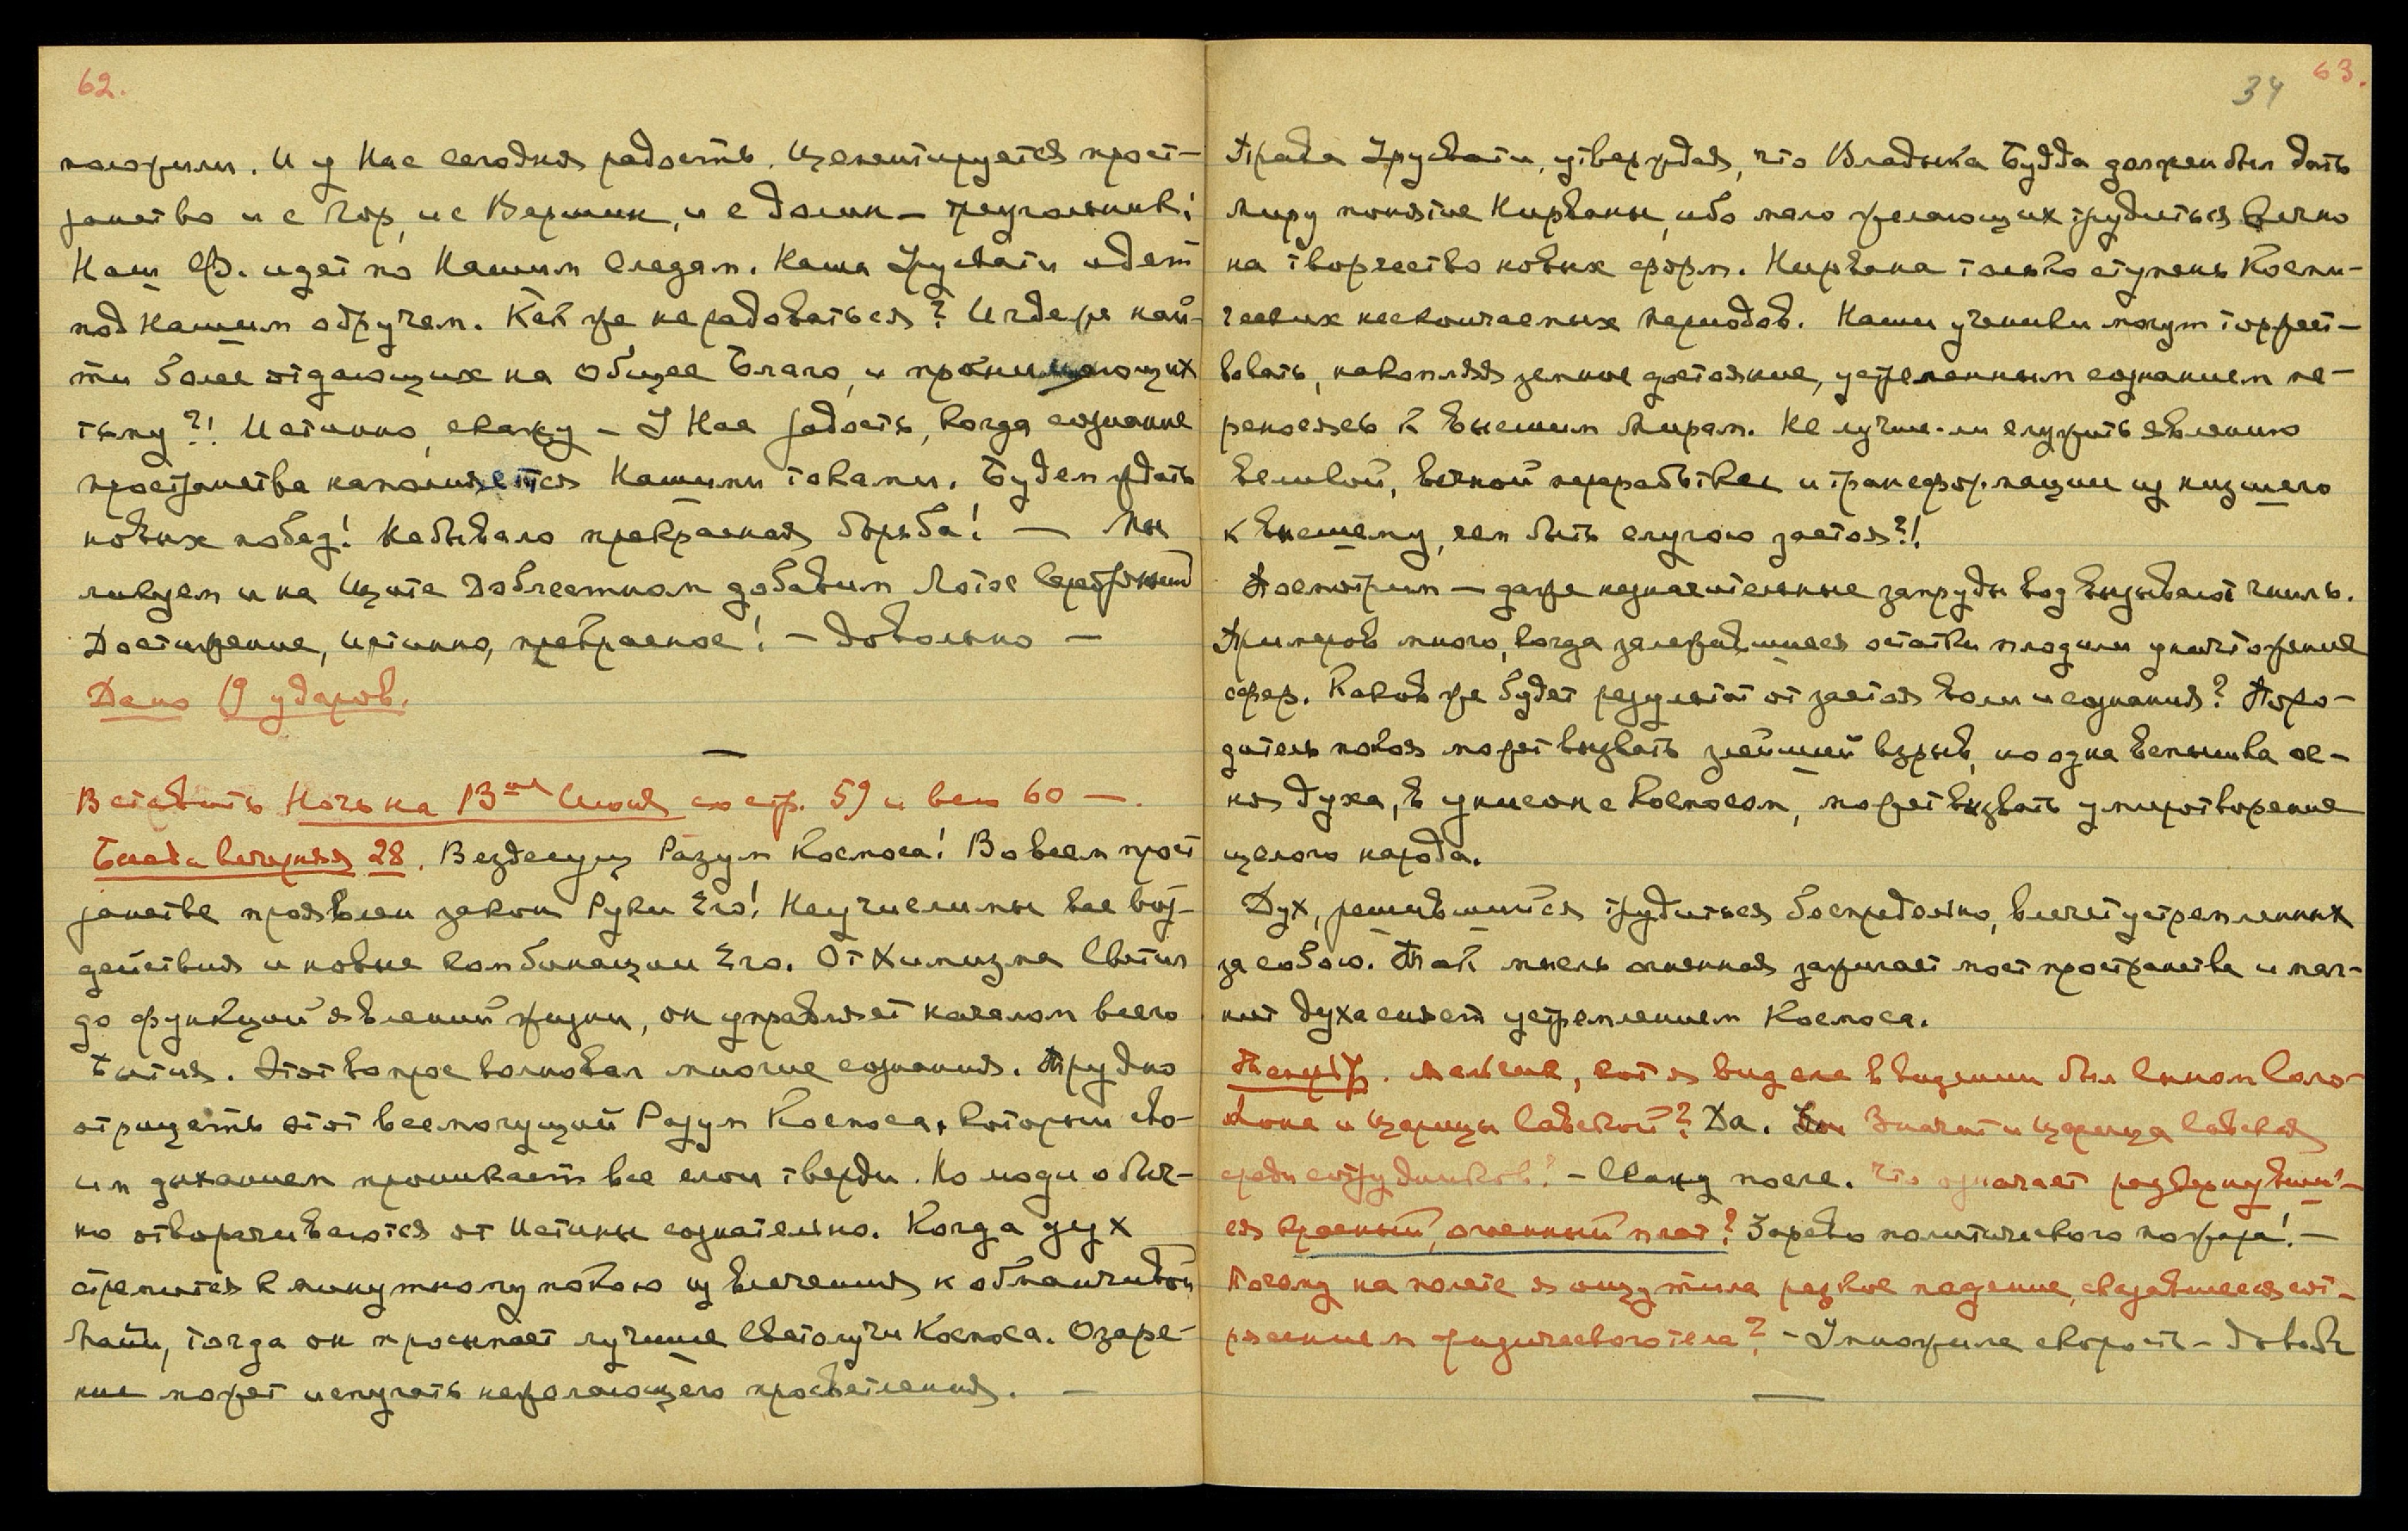 62.
положили. И у Нас сегодня радость. Цементируется прост-
ранство и с Гор, и с Вершин, и с долин – треугольник!
Наш Ф. идет по Нашим следам. Наша Урусвати идет
под Нашим обручем. Как же не радоваться? И где же най-
ти более отдающих на Общее Благо, и проникающих
тьму?! Истинно, скажу – У Нас радость, когда сознание
пространства наполняется Нашими токами. Будем ждать
новых побед! Небывало прекрасная борьба! — Мы
ликуем и на Щите Доблестном добавим Лотос Серебряный
Достижение, Истинно, прекрасное! – Довольно –
Дано 19 ударов.
—
Вставить Ночь на 13ое Июня со стр. 59 и всю 60 —.
Беседа вечерняя 28. Вездесущ Разум Космоса! Во всем прост
ранстве проявлен закон Руки Его! Неучислимы все воз-
действия и новые комбинации Его. От Химизма Светил
до функций явлений жизни, он управляет началом всего
Бытия. Этот вопрос волновал многие сознания. Трудно
отрицать этот всемогущий Разум Космоса, который сво-
им дыханием проникает все слои тверди. Но люди обыч-
но отворачиваются от Истины сознательно. Когда дух
стремится к минутному покою из влечения к обманчивой
Майи, тогда он просыпает лучшие Светолучи Космоса. Озаре-
ние может испугать нежелающего просветления. –
34 63.
Права Урусвати, утверждая, что Владыка Будда должен был дать
Миру понятие Нирваны, ибо мало желающих трудиться вечно
на творчество новых форм. Нирвана только ступень Косми-
ческих нескончаемых периодов. Наши ученики могут торжест-
вовать, накопляя земное достояние, устремленным сознанием пе-
реносясь к Высшим Мирам. Не лучше-ли служить явлению
великой, вечной переработке и трансформации из низшего
к высшему, чем быть слугою застоя?!
Посмотрим – даже незначительные запруды вод вызывают гниль.
Примеров много, когда залежавшиеся остатки плодили уничтожение
сфер. Каков же будет результат от застоя воли и сознания? Поро-
дитель покоя может вызвать злейший взрыв, но одна вспышка ог-
ня духа, в унисон с Космосом, может вызвать умиротворение
целого народа.
Дух, решившийся трудиться беспредельно, влечет устремленных
за собою. Так мысль огненная зажигает мост пространства и маг-
нит духа сияет устремлением Космоса.
меньше, кот я видела в видении был сыном Соло-
мона и Царицы Савской? Да. Значит и Царица Савская
среди сотрудников? – Скажу после. Что означает развернувший-
ся красный, огненный плат? Зарево политического пожара! –
Почему на полете я ощутила резкое падение, сказавшееся сот-
рясением физического тела? – Умножила скорость – Довол
—